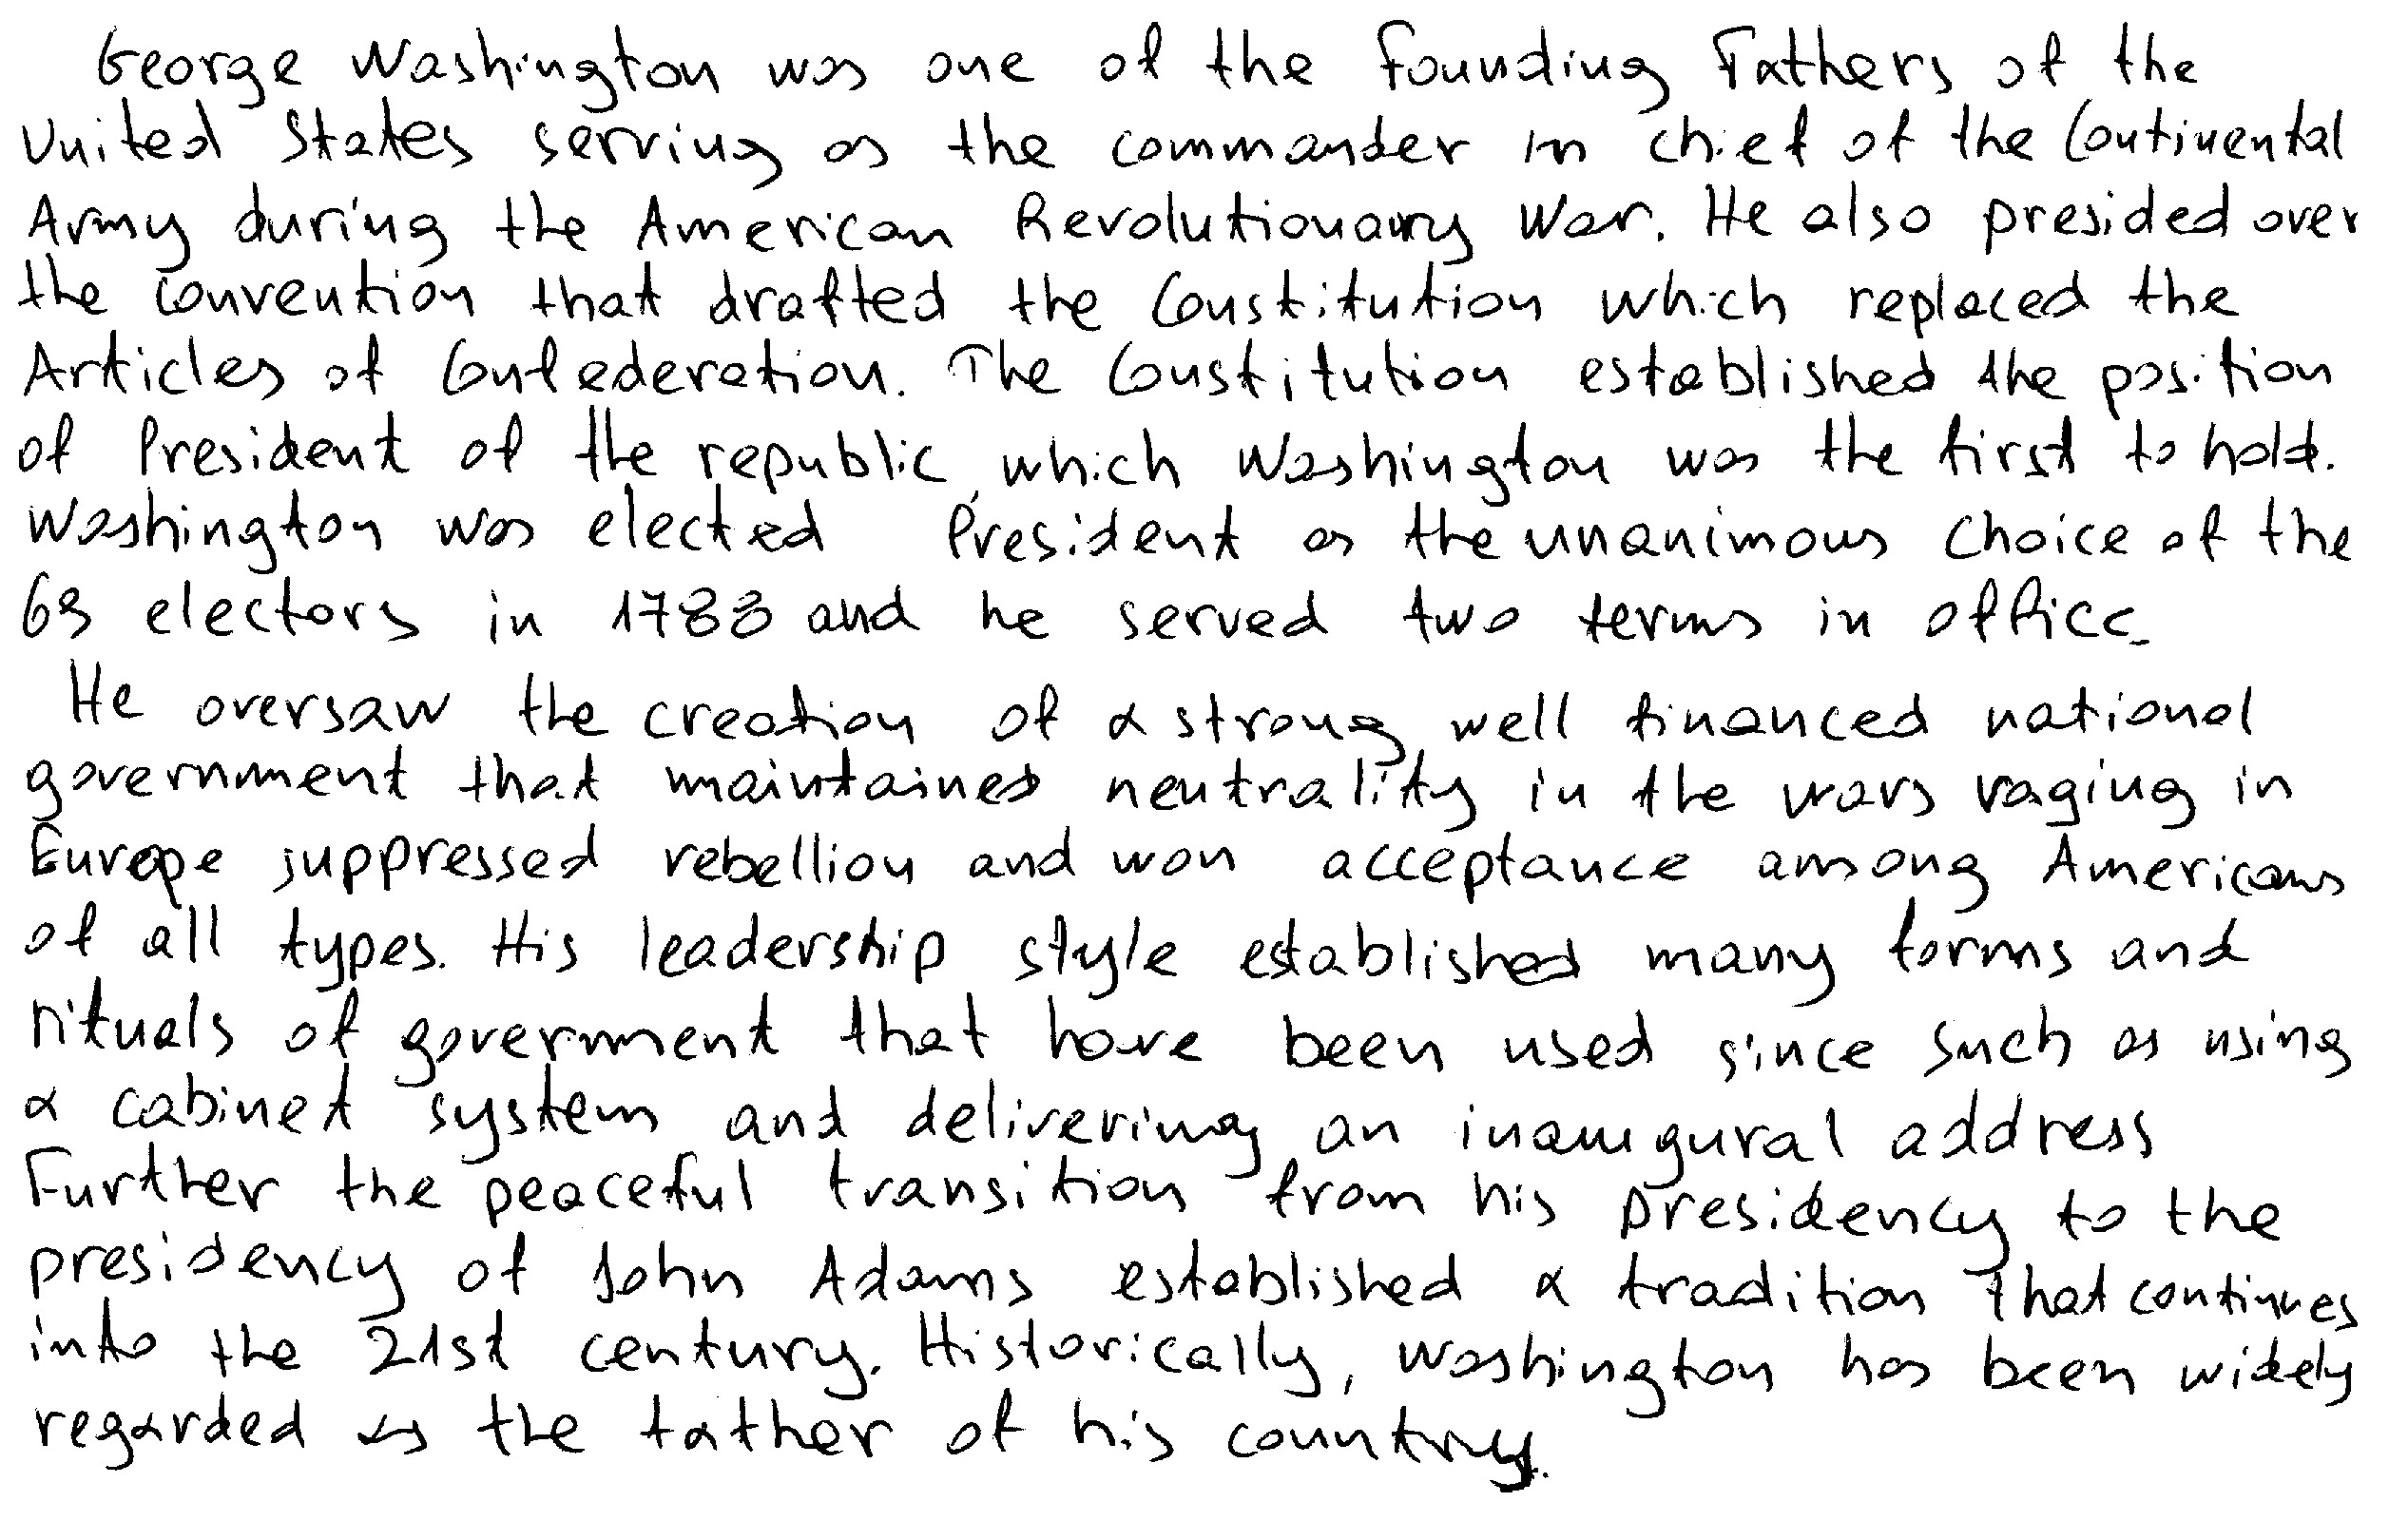 George Washington was one of the Founding Fathers of the
United States serving as the commander in chief of the Continental
Army during the American Revolutionary War. He also presided over
the convention that drafted the Constitution which replaced the
Articles of Confederation. The Constitution established the position
of President of the republic, which Washington was the first to hold.
Washington was elected President as the unanimous choice of the
69 electors in 1788 and he served two terms in office.
He oversaw the creation of a strong, well financed national
government that maintained neutrality in the wars raging in
Europe suppressed rebellion and won acceptance among Americans
of all types. His leadership style established many forms and
rituals of government that have been used since such as using
a cabinet system and delivering an inaugural address
Further the peaceful transition from his presidency to the
presidency of John Adams established a tradition that continues
into the 21st century. Historically, Washington has been widely
regarded as the father of his country.